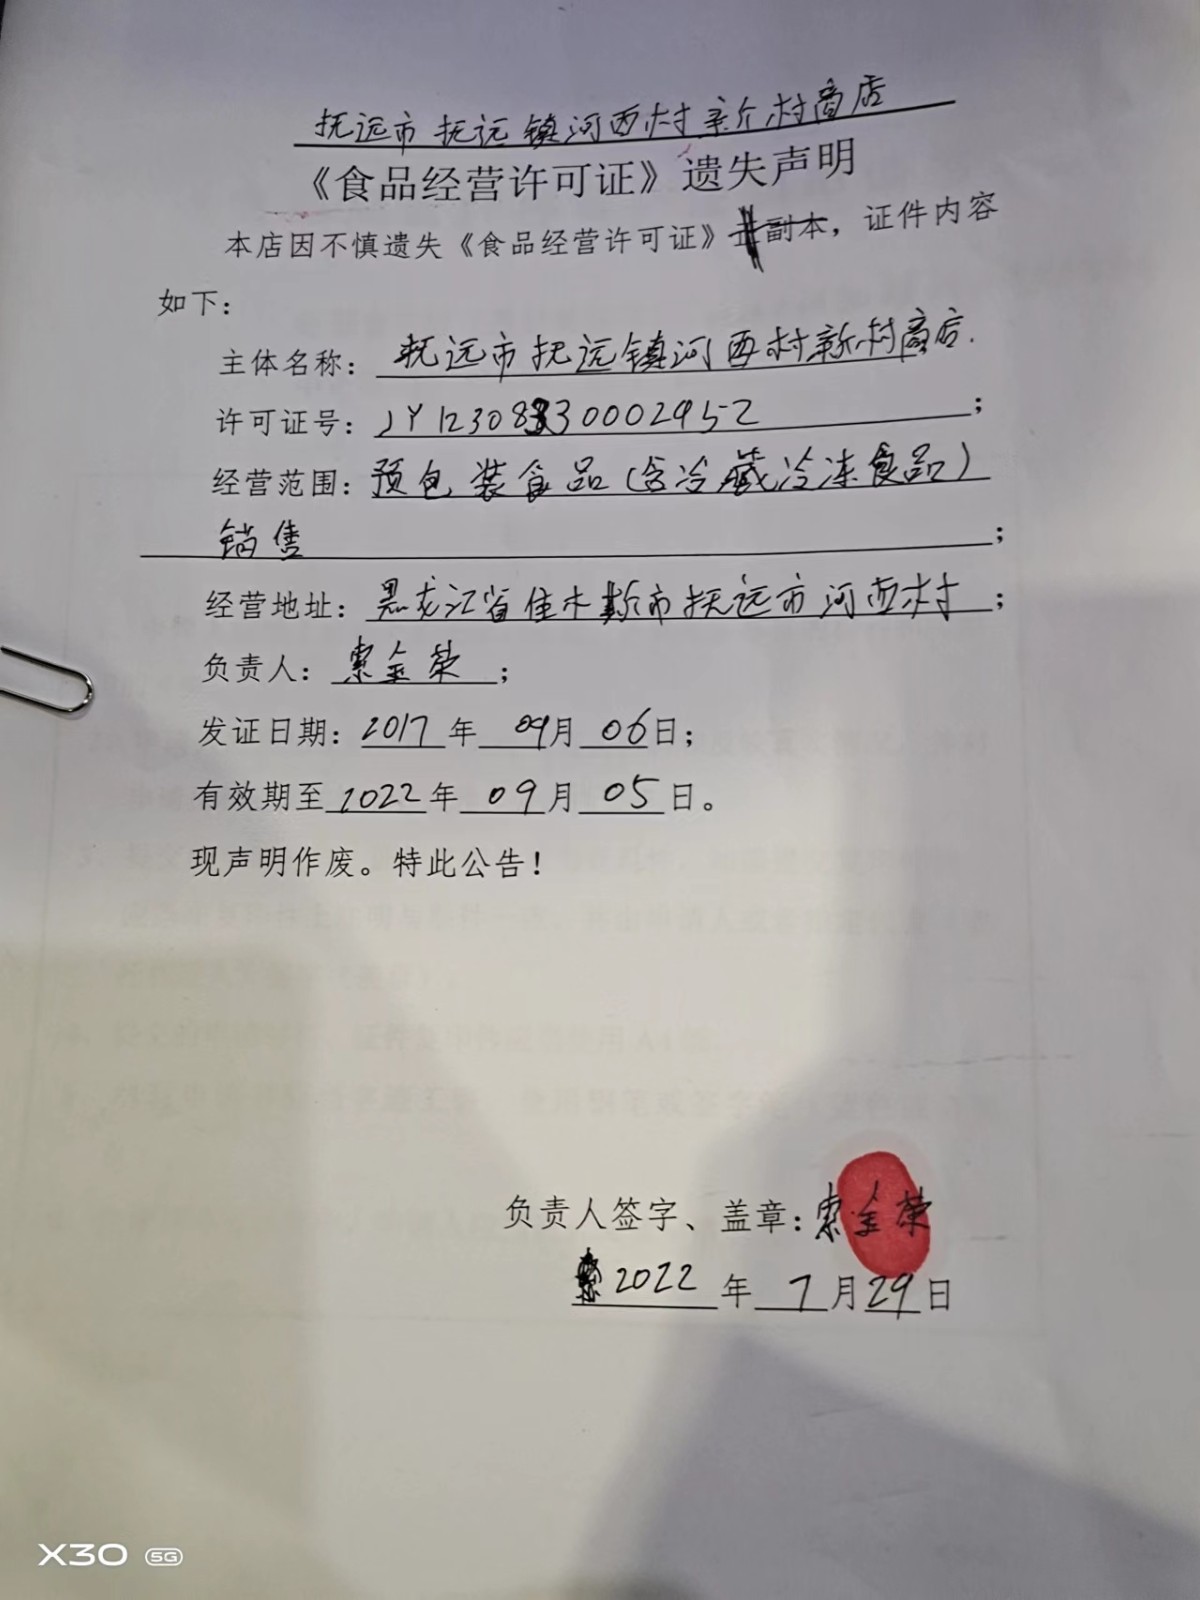 抚远市抚远镇河西村新村商店
《食品经营许可证》遗失声明
本店因不慎遗失《食品经营许可证》正副本，证件内容
如下：
主体名称：抚远市抚远镇河西村新村商店.
许可证号：JY12308330002952；
经营范围：预包装食品（含冷藏冷冻食品）
销售；
经营地址：黑龙江省佳木斯市抚远市河西村；
负责人：索金荣；
发证日期：2017年09月06日；
有效期至2022年09月05日。
现声明作废。特此公告！
负责人签字、盖章：索金荣
2022年7月29日
X30 5G